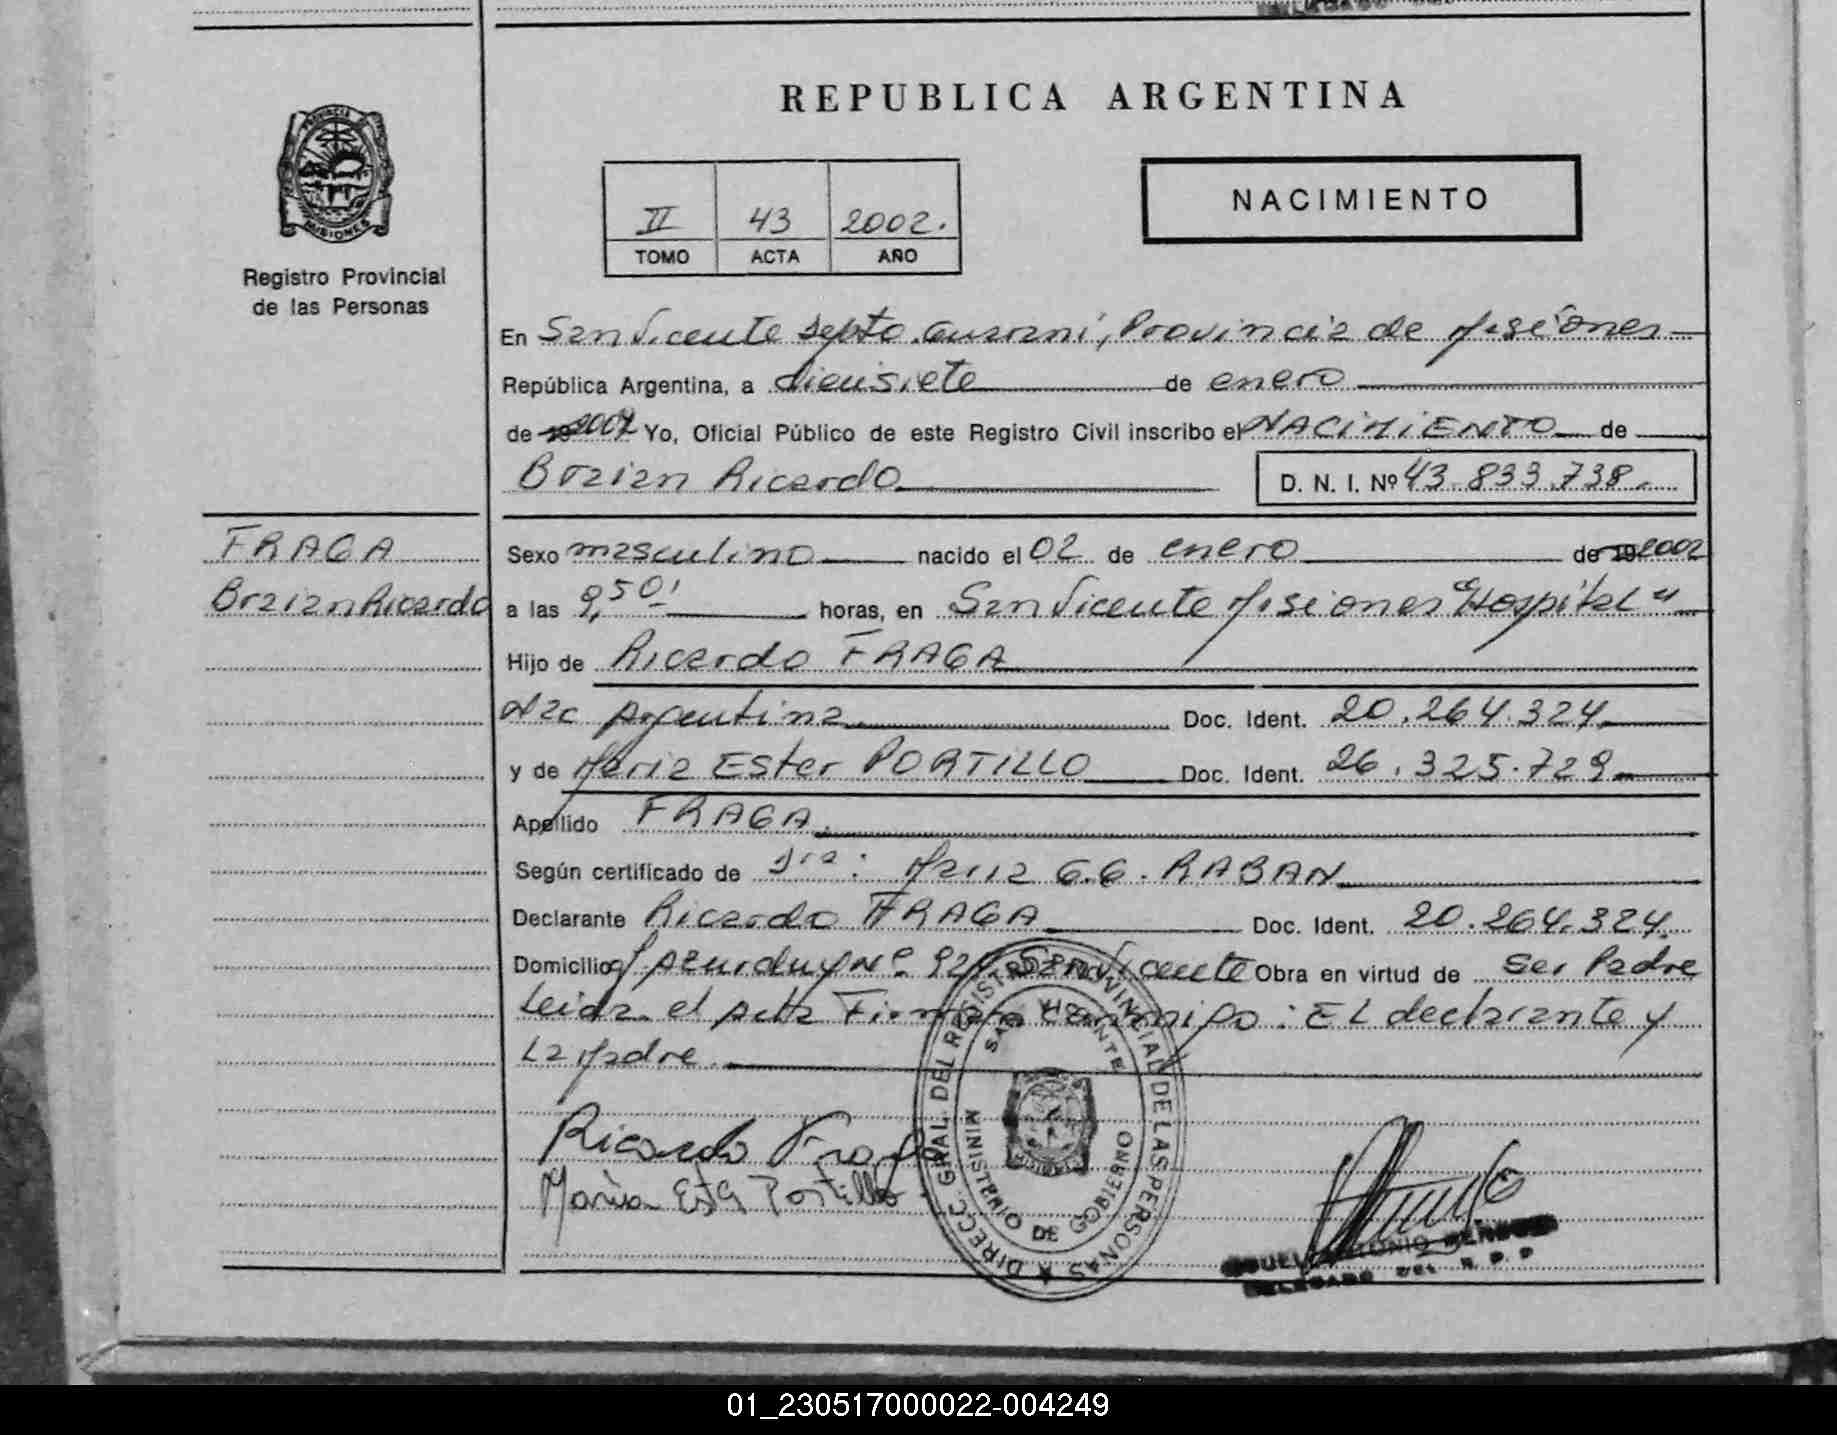 REPUBLICA ARGENTINA
PROVINCIA DE MISIONES
Registro Provincial
de las Personas
II 43 2002.
TOMO ACTA AÑO
NACIMIENTO
En San Vicente Depto. Guarani, Provincia de Misiones
República Argentina, a diecisiete de enero
de 2002 Yo, Oficial Público de este Registro Civil inscribo el NACIMIENTO de
Braian Ricardo D. N. I. Nº 43.833.738.
FRAGA
Braian Ricardo
Sexo masculino nacido el 02 de enero de 2002
a las 9,50' horas, en San Vicente Misiones "Hospital"
Hijo de Ricardo FRAGA
Nac Argentina Doc. Ident. 20.264.324
y de Maria Ester PORTILLO Doc. Ident. 26.325.729
Apellido FRAGA
Según certificado de Dra: Maria G.G. RABAN
Declarante Ricardo FRAGA Doc. Ident. 20.264.324.
Domicilio J Azurduy Nº 920 San Vicente Obra en virtud de ser Padre
Leida el Acta Firman conmigo: EL declarante y
La Madre.
Ricardo Fraga
Maria Ester Portillo
DIRECC. GRAL. DEL REGISTRO PROVINCIAL DE LAS PERSONAS
SAN VICENTE
MINISTERIO DE GOBIERNO
ANTONIO
DELEGADO DEL R. P. P
01_230517000022-004249